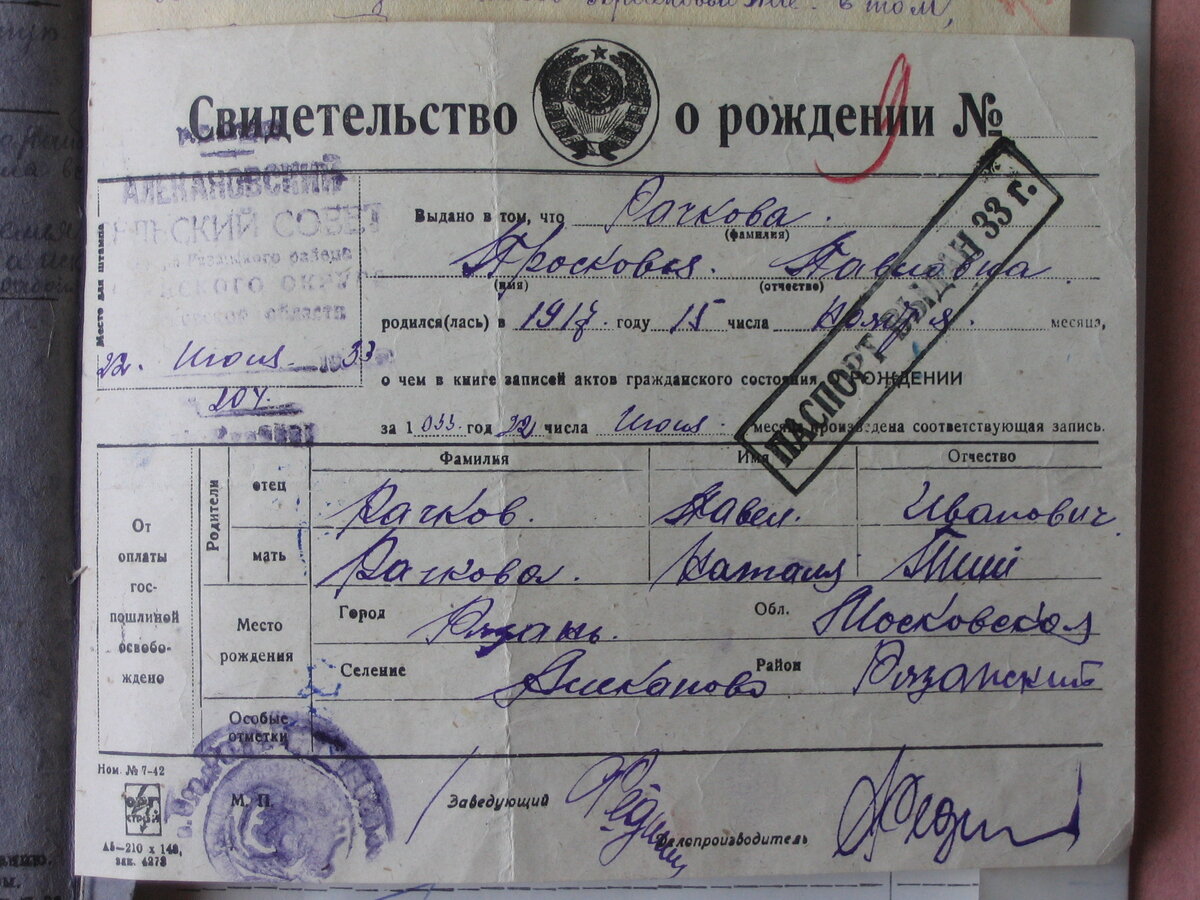 в том,
Свидетельство о рождении №
9
АЛЕКАНОВСКИЙ
СКИЙ СОВЕТ
Рязанского района
СКОГО ОКРУГ
области
Место для штампа
22. Июля 33
204.
Выдано в том, что Рачкова.
(фамилия)
Просковья. Павловна
(имя) (отчество)
родился(лась) в 1917 году 15 числа месяца,
ПАСПОРТ ВЫДАН 33 г.
о чем в книге записей актов гражданского состояния о РОЖДЕНИИ
за 1 933 год 22 числа Июля. месяца произведена соответствующая запись.
Фамилия Имя Отчество
От оплаты гос-пошлиной освобо-ждено
Родители
отец Рачков. Павел. Иванович
мать Рачкова. Наталя
Место рождения
Город Рязань. Обл. Московская
Селение Алеканово Район Рязанский
Особые отметки
Ном. № 7-42
М. П.
Заведующий
Делопроизводитель
А5—210 x 148,
зак. 4273